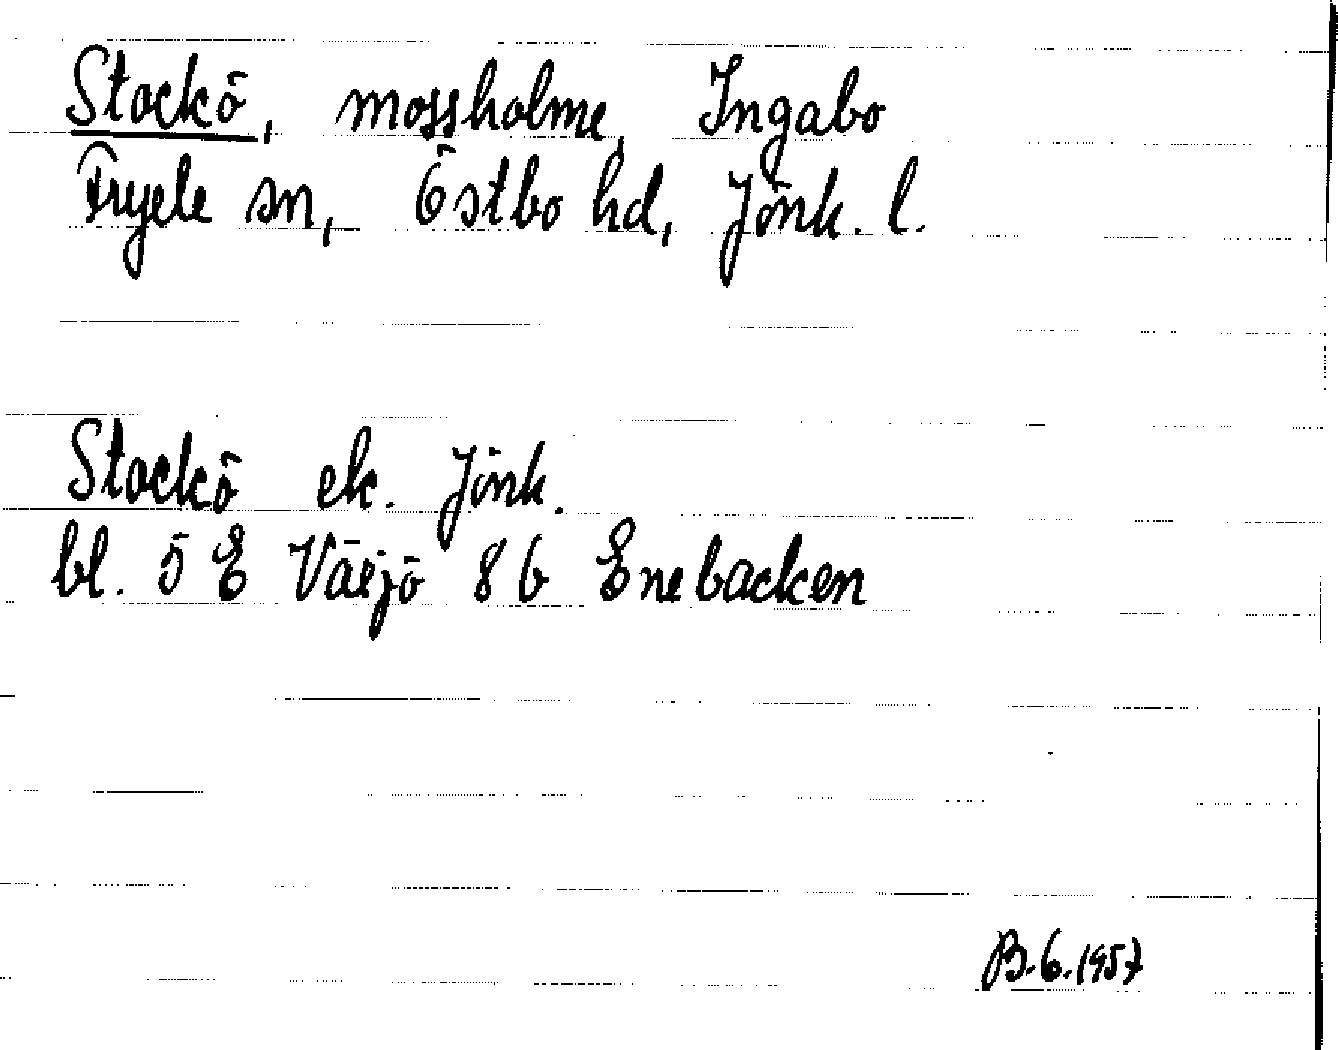 Stockö, mossholme, Ingabo
Fryele sn, Östbo hd, Jönk. l.
Stockö ek. Jönk.
bl. 5 E Växjö 8 b Enebacken
B.G.1957